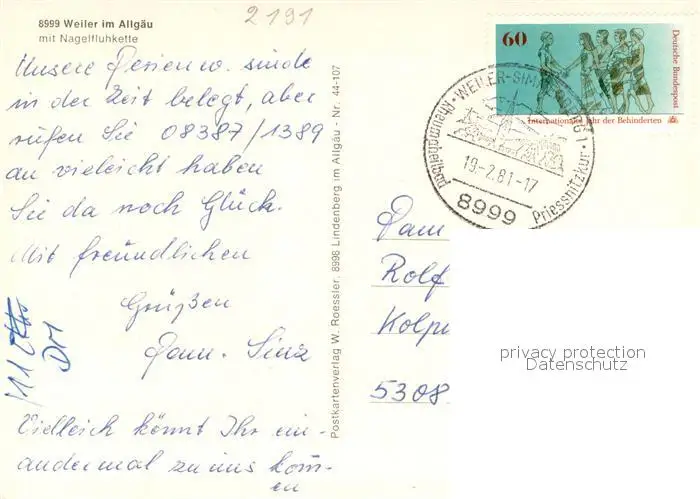 2191
8999 Weiler im Allgäu
mit Nagelfluhkette
Unsere Ferienw. sind
in der Zeit belegt, aber
rufen Sie 08387/1389
an vieleicht haben
Sie da noch Glück.
Mit freundlichen
Grüßen
Fam. Sinz
DM
Vielleich könnt Ihr ein-
andermal zu uns kom-
en
Postkartenverlag W. Roessler, 8998 Lindenberg im Allgäu - Nr. 44-107
60
Deutsche Bundespost
Internationales Jahr der Behinderten
WEILER-SIMMERBERG 1
19-2.81-17
8999
Priessnitzkur
Rheumaheilbad
Fam
Rolf
Kolpi
5308
privacy protection
Datenschutz